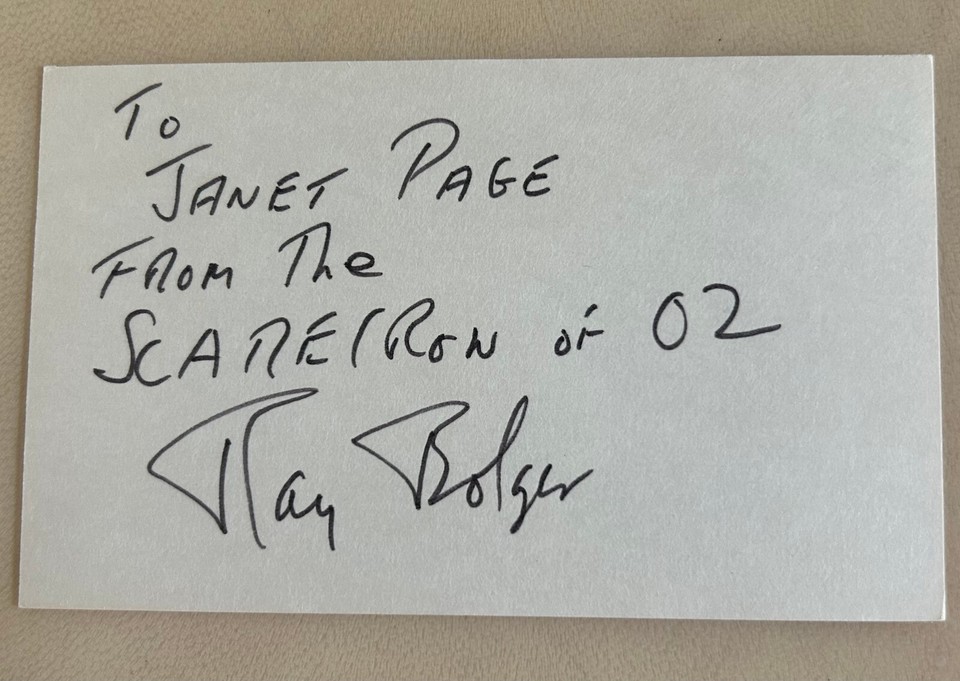 To
JANET PAGE
FROM The
SCARECROW OF OZ
Ray Bolger